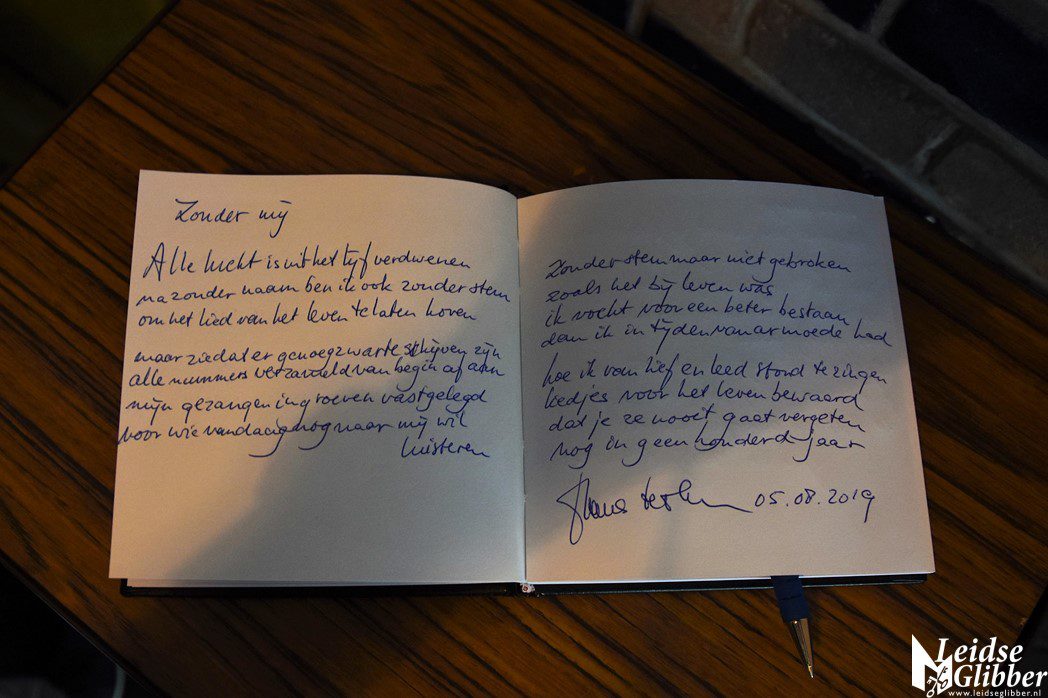 Zonder mij
Alle lucht is uit het lijf verdwenen
na zonder naam ben ik ook zonder stem
om het lied van het leven te laten horen
maar zie dat er genoeg zwarte schijven zijn
alle nummers verzameld van begin af aan
mijn gezangen in groeven vastgelegd
voor wie vandaag nog naar mij wil
luisteren
Zonder stem maar niet gebroken
zoals het bij leven was
ik vocht voor een beter bestaan
dan ik in tijden van armoede had
hoe ik van lief en leed stond te zingen
liedjes voor het leven bewaard
dat je ze nooit gaat vergeten
nog in geen honderd jaar
05.08.2019
Leidse
Glibber
www.leidseglibber.nl